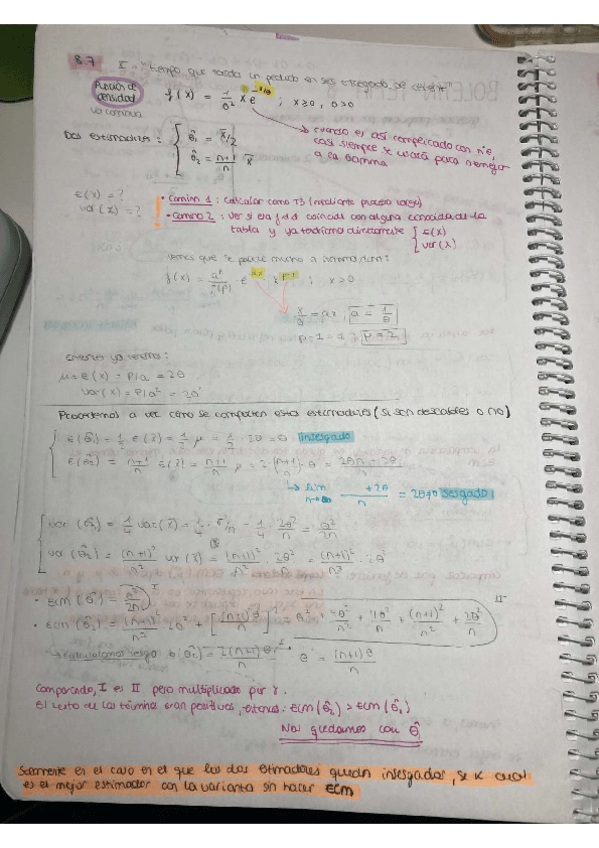 8.7 X = "tiempo que tarda un pedido en ser entregado
Función de densidad f(x) = 1/θ² x e^(-x/θ) ; x≥0, θ>0
va continua
Dos estimadores: { θ̂₁ = x̄/2
θ̂₂ = (n+1)/n x̄
cuando es así complicado con nº e,
casi siempre se usará para
a la gamma
E(x) = ?
var(x) = ?
· Camino 1: calcular como T3 (mediante proceso largo)
· Camino 2: ver si esa f.d.d coincide con alguna conocida de la
tabla y ya tendríamos directamente { E(X)
var(X)
vemos que se parece mucho a
f(x) = a^p/Γ(p) · e^(-ax) x^(p-1) ; x>0
x/θ = ax, a = 1/θ
p-1 = 1 ; p = 2
entonces ya tenemos:
μ = E(x) = p/a = 2θ
var(x) = p/a² = 2θ²
Procedemos a ver cómo se comportan estos estimadores (si son deseables o no)
E(θ̂₁) = 1/2 E(x̄) = 1/2 μ = 1/2 · 2θ = θ Insesgado
E(θ̂₂) = (n+1)/n E(x̄) = (n+1)/n μ = 2·(n+1)/n · θ = (2θn+2θ)/n
lim n→∞ +2θ / n = 2θ≠θ sesgado
var(θ̂₁) = 1/4 var(x̄) = 1/4 · σ²/n = 1/4 · 2θ²/n = θ²/2n
var(θ̂₂) = (n+1)²/n² var(x̄) = (n+1)²/n² · 2θ²/n = (n+1)²/n³ · 2θ²
· ECM(θ̂₁) = θ²/2n I
· ECM(θ̂₂) = (n+1)²/n³ 2θ² + II
calculamos sesgo b(θ̂₂) = 2(n+1)θ/n - θ =
Comparado, I es II pero multiplicado por
El resto de los términos eran positivos, entonces: ECM(θ̂₂) > ECM(θ̂₁)
Nos quedamos con θ̂₁
Solamente en el caso en el que los dos estimadores queden insesgados, se ve cual
es el mejor estimador con la varianza sin hacer ECM